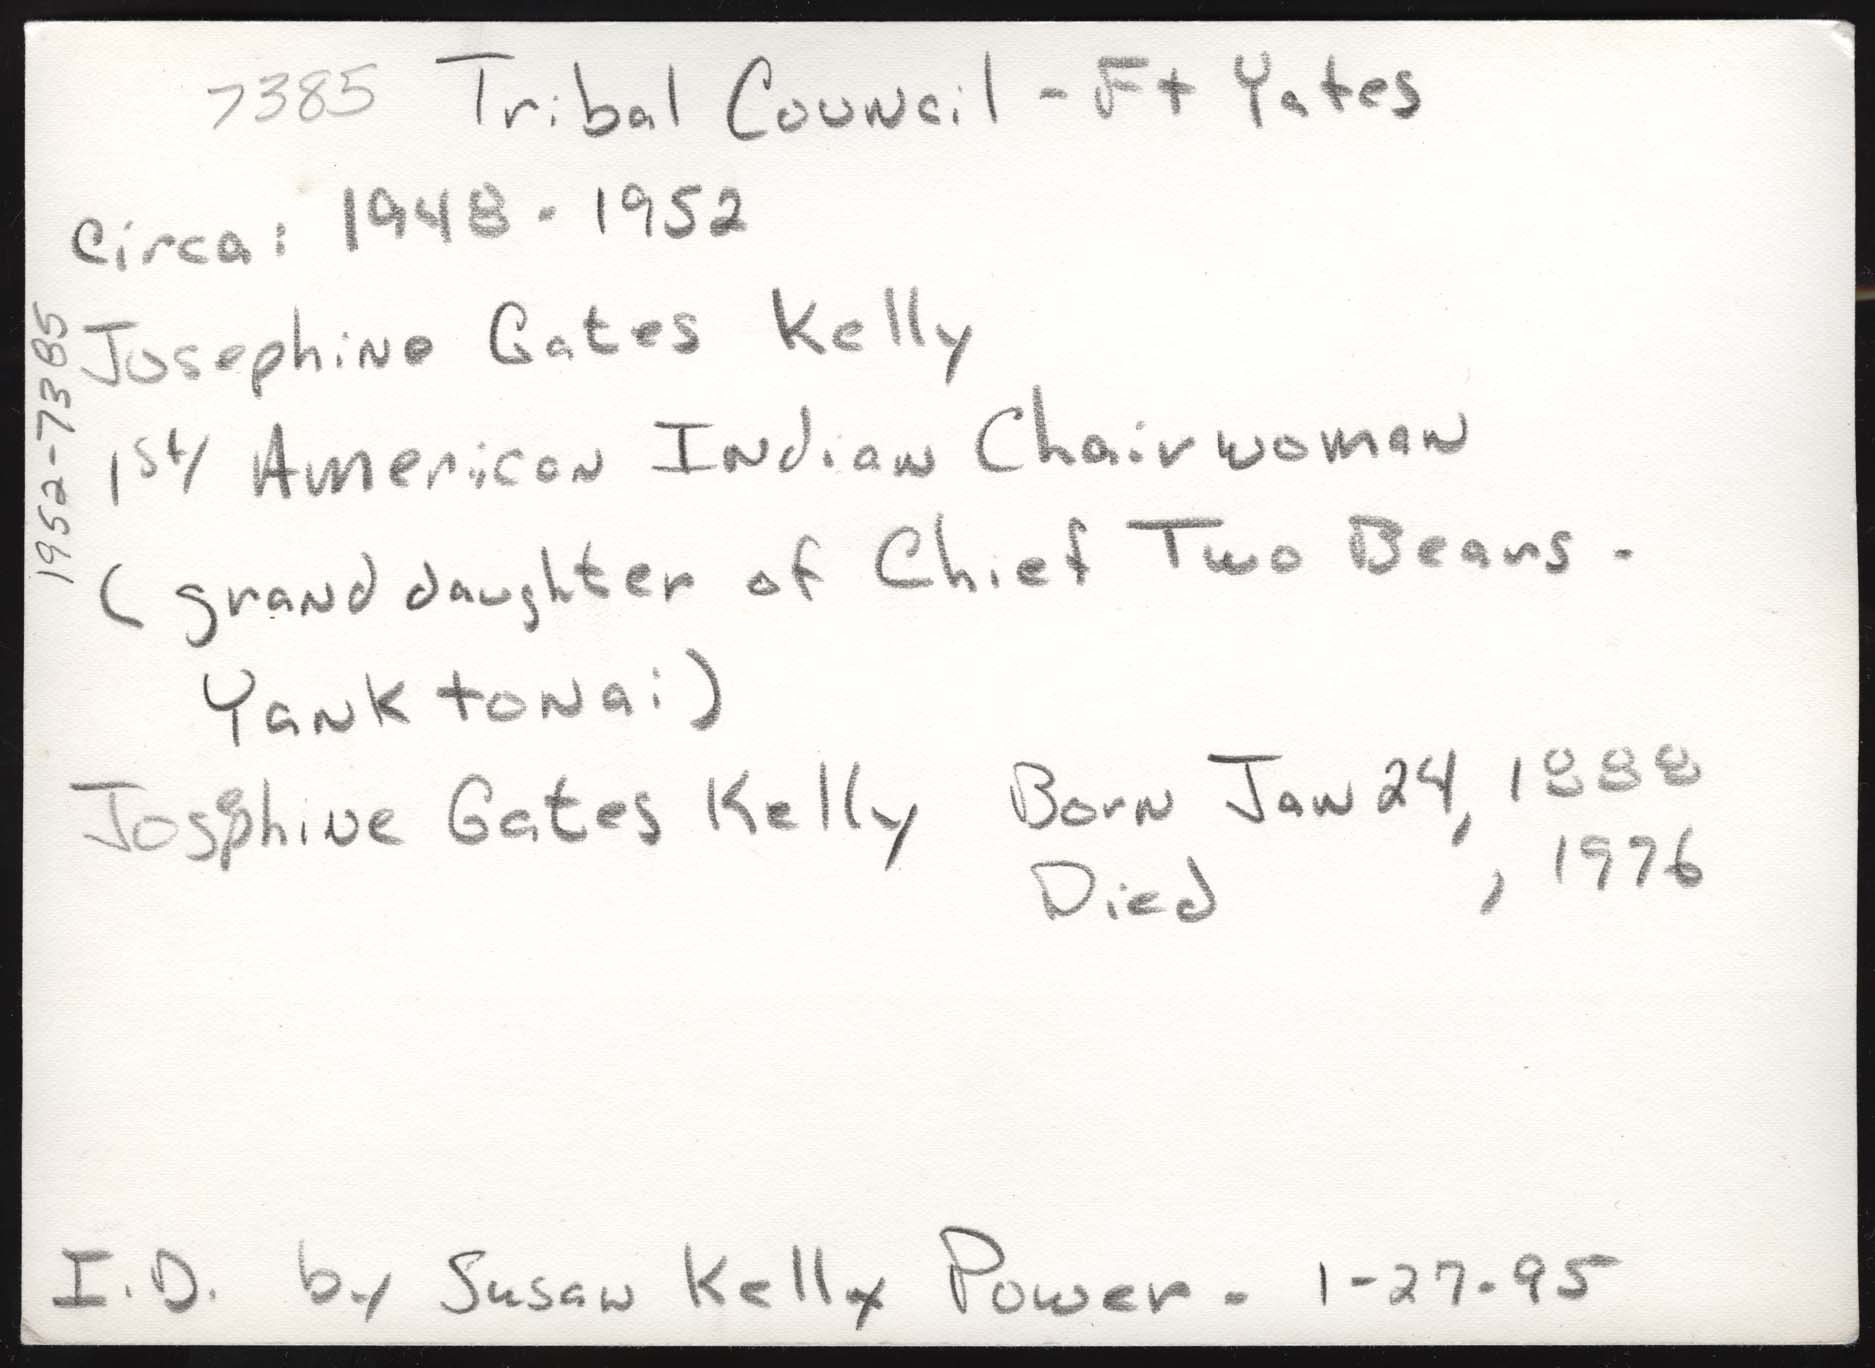 7385 Tribal Council - Ft Yates
Circa: 1948 - 1952
Josephine Gates Kelly
1st/ American Indian Chairwoman
(granddaughter of Chief Two Bears -
Yanktonai)
Josephine Gates Kelly Born Jan 24, 1888
Died , 1976
I.D. by Susan Kelly Power - 1-27-95
1952-7385